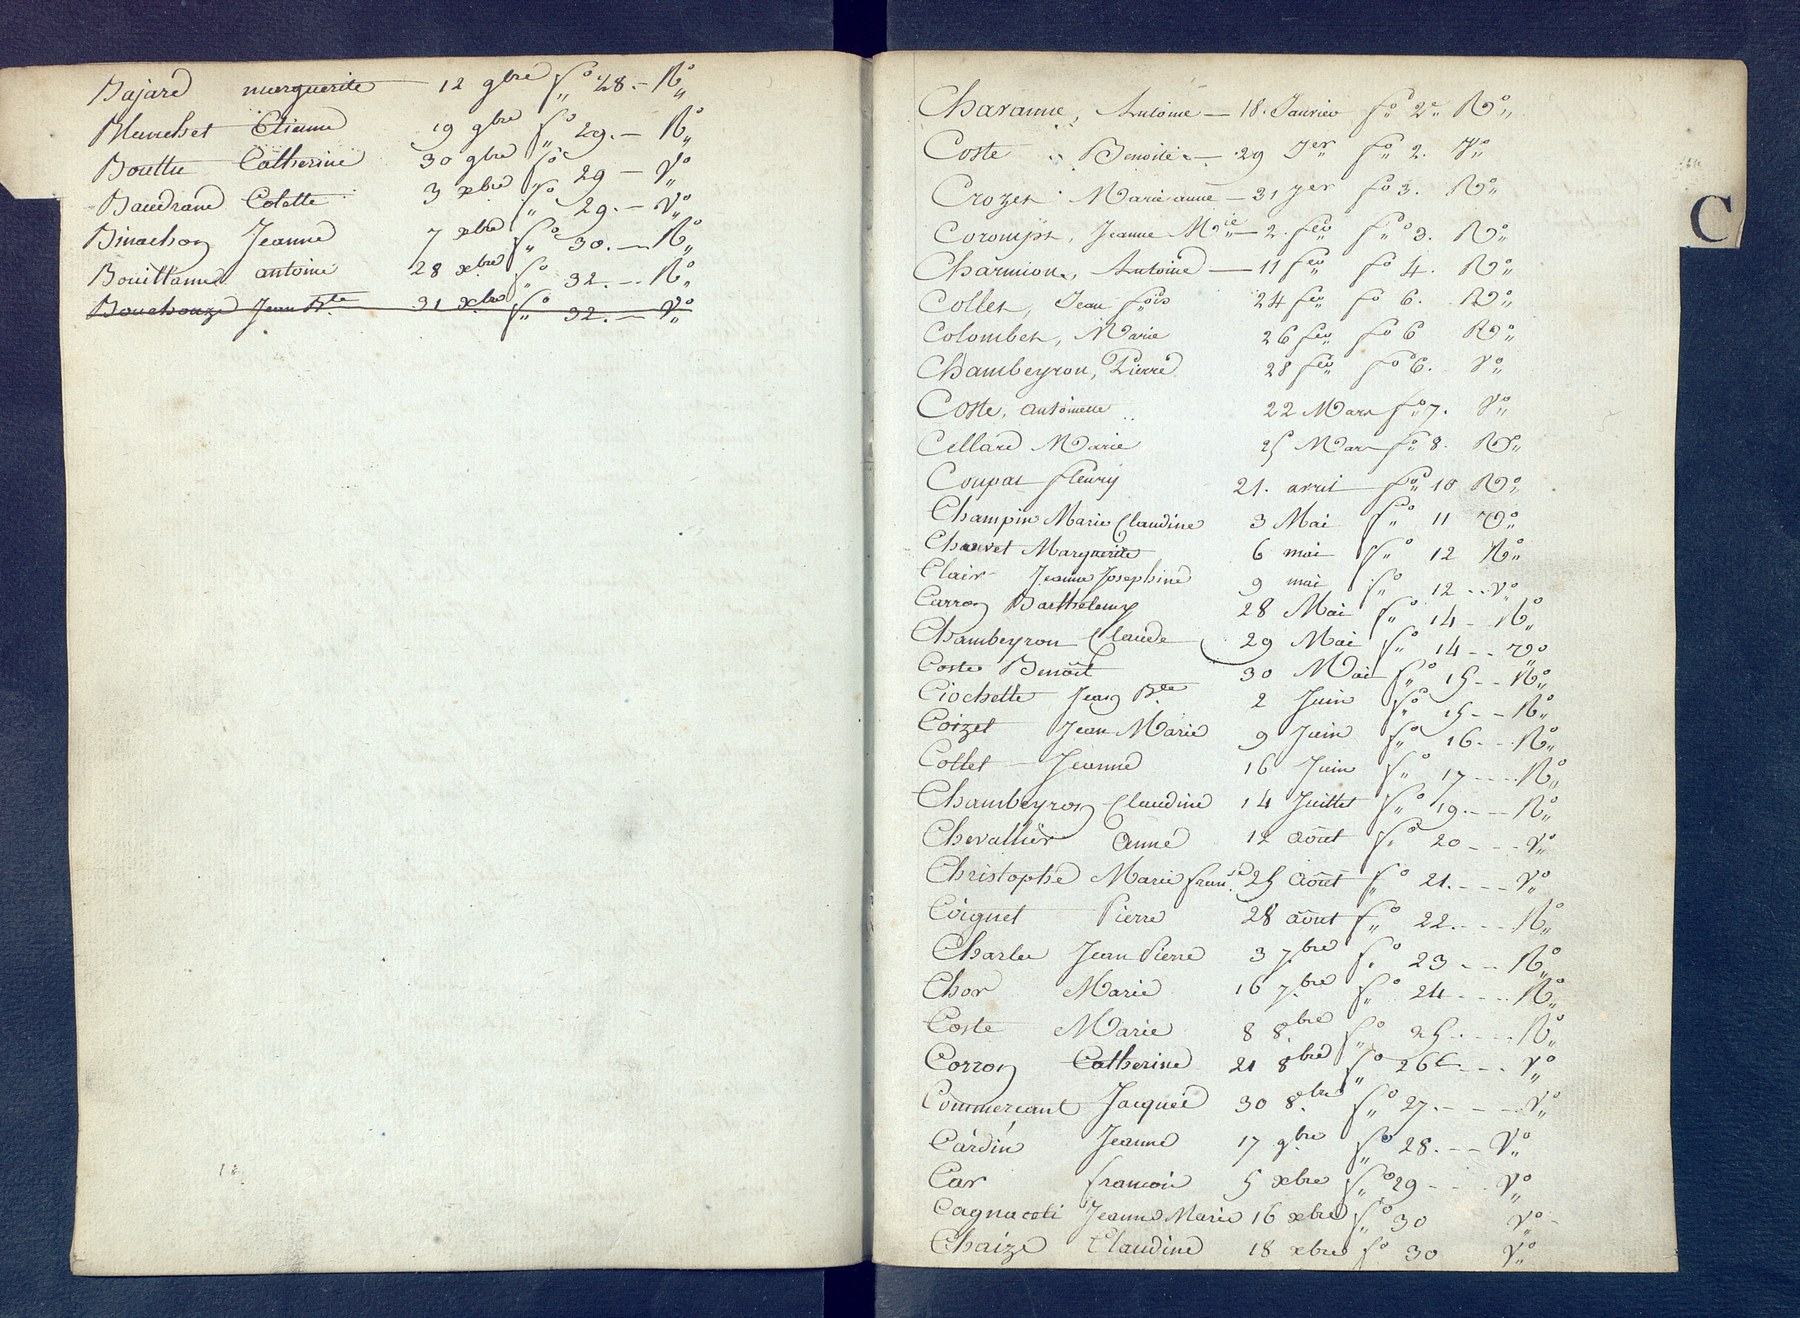 Bajard marguerite 12 9bre fo 28. R°
Blanchet Etienne 19 9bre fo 29. R°
Bouttu Catherine 30 9bre fo 29 V°
Baudrand Colette 3 xbre fo 29. V°
Binachon Jeanne 7 xbre fo 30. R°
Bouillanne antoine 28 xbre fo 32. R°
Bouchouze Jean Bte 31 xbre fo 32. V°
12
C
Charanne, Antoine — 18. Janvier fo 2e R°
Coste Benoite — 29 Jer fo 2. V°
Crozet Marie anne — 31 Jer fo 3. R°
Corompt, Jeanne Mie — 2. fev fo 3. R°
Charmion, Antoine — 11 fev fo 4. R°
Collet, Jean fois 24 fev fo 6. R°
Colombet, Marie 26 fev fo 6 R°
Chambeyron, Pierre 28 fev fo 6. V°
Coste, antoinette 22 Mars fo 7. V°
Cellard Marie 25 Mars fo 8. R°
Coupat fleury 21. avril fo 10 R°
Champin Marie Claudine 3 Mai fo 11 V°
Chauvet Marguerite 6 mai fo 12 R°
Clair Jeanne Josephine 9 mai fo 12 V°
Carron Barthelemy 28 Mai fo 14 R°
Chambeyron Claude 29 Mai fo 14 V°
Coste Benoît 30 Mai fo 15 R°
Ciochette Jean Bte 2 Juin fo 15 R°
Coizet Jean Marie 9 Juin fo 16 R°
Collet Jeanne 16 Juin fo 17 R°
Chambeyron Claudine 14 Juillet fo 19. R°
Chevallier anne 12 août fo 20 V°
Christophe Marie franse 25 Août fo 21. V°
Coignet Pierre 28 août fo 22. R°
Charles Jean Pierre 3 7bre fo 23 R°
Chor Marie 16 7bre fo 24 R°
Coste Marie 8 8bre fo 25. R°
Corron Catherine 21 8bre fo 26 V°
Commerçant Jacques 30 8bre fo 27. V°
Cardin Jeanne 17 9bre fo 28. V°
Car francois 5 xbre fo 29 V°
Cagnacoti Jeanne Marie 16 xbre fo 30 V°
Chaize Claudine 18 xbre fo 30 V°